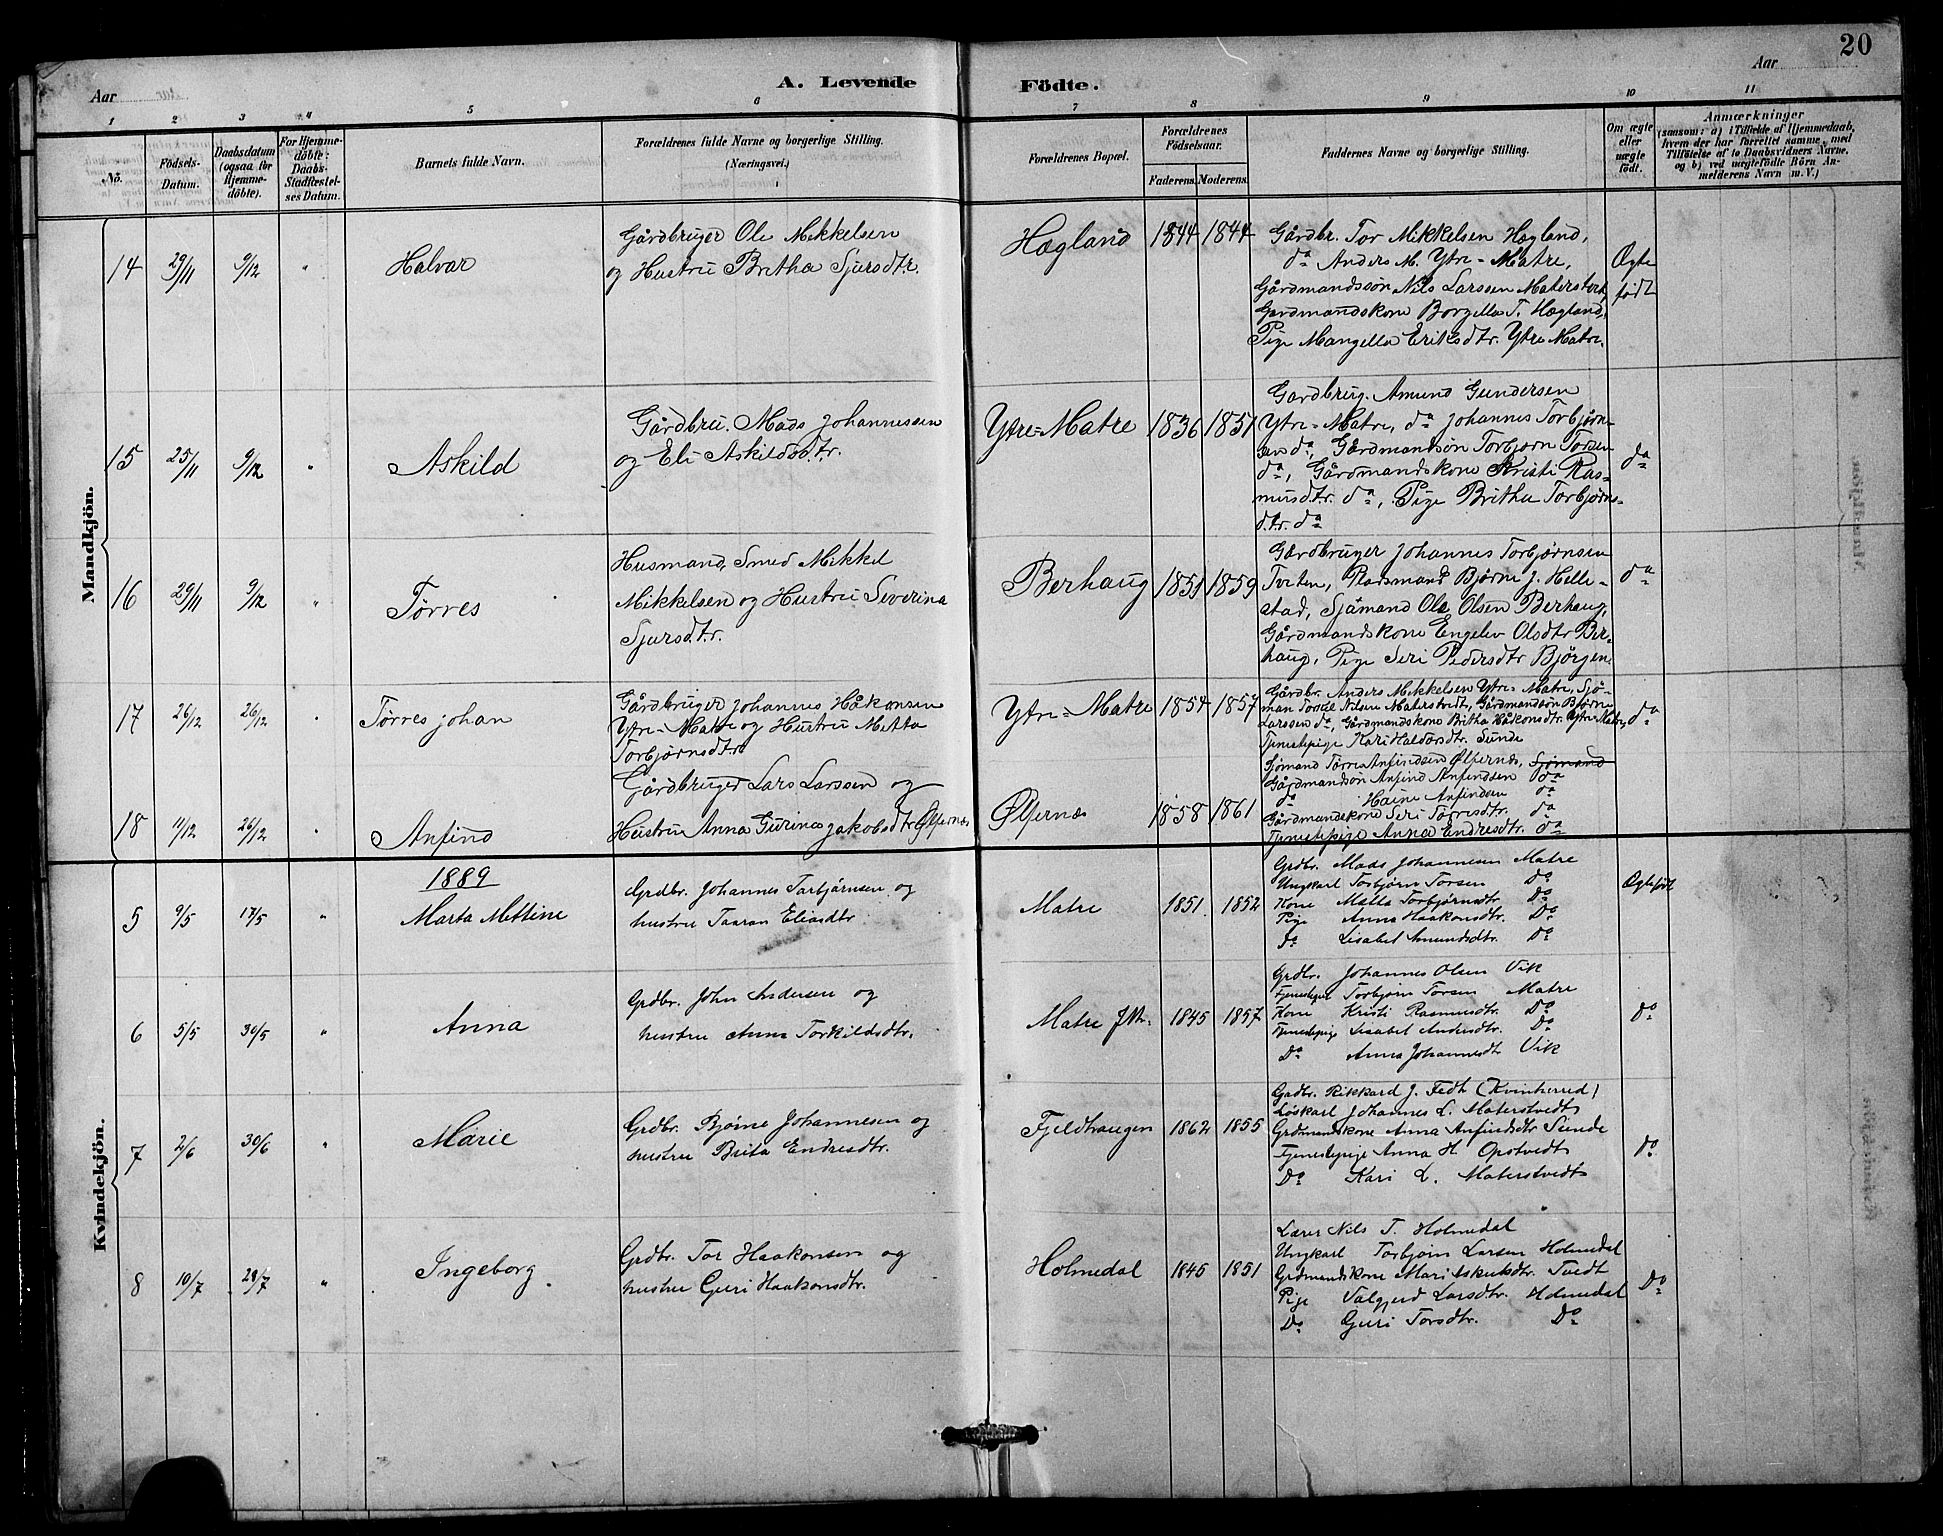 20
Aar
A. Levende Födte.
Aar
1 2 3 4 5 6 7 8 9 10 11
No.
Födsels-Datum.
Daabsdatum (ogsaa for Hjemme-döbte).
For Hjemme-döbte: Daabs-Stadfæstel-ses Datum.
Barnets fulde Navn.
Forældrenes fulde Navne og borgerlige Stilling.
(Næringsvei.)
Forældrenes Bopæl.
Forældrenes Födselsaar.
Faderens. Moderens.
Faddernes Navne og borgerlige Stilling.
Om ægte eller uægte födt.
Anmærkninger
(saasom: a) i Tilfælde af Hjemmedaab,
hvem der har forrettet samme, med
Tilföielse af to Daabsvidners Navne.
og b) ved uægtefödte Börn An-
melderens Navn m. V.)
Mandkjön.
14 29/11 9/12 " Halvar
Gårdbruger Ole Mikkelsen
og Hustru Britha Sjursdtr.
Hægland 1844 1844
Gårdbr. Tor Mikkelsen Hægland,
da Anders M. Ytre-Matre,
Gårdmandssøn Nils Larssen Materstvet,
Gardmandskone Borgilla T. Hægland,
Pige Mangella Eriksdtr. Ytre Matre.
Ægte født
15 25/11 9/12 " Askild
Gårdbru. Mads Johannessen
og Eli Askildsdtr.
Ytre-Matre 1836 1851
Gardbrug. Amund Gundersen
Ytre-Matre, da Johannes Torbjørn-
sen da, Gårdmandsøn Torbjørn Torsen
da, Gårdmandskone Kristi Ras-
musdtr. da, Pige Britha Torbjørns-
dtr. da
da
16 29/11 9/12 " Tørres
Husmand, Smed Mikkel
Mikkelsen og Hustru Severina
Sjursdtr.
Berhaug 1851 1859
Gardbruger Johannes Torbjørnsen
Tviten, Pladsmand Bjørne J. Helle-
stad, Sjømand Ole Olsen Berhaug,
Gårdmandskone Engelev Olsdtr Ber-
haug, Pige Seri Pedersdtr Bjørgen.
da
17 26/12 26/12 " Tørres Johan
Gårdbruger Johannes Håkonsen
Ytre-Matre og Hustru Metta
Torbjørnsdtr.
Ytre-Matre 1854 1857
Gårdbr. Anders Mikkelsen Ytre-Matre, Sjø-
man Nilsen Materstvedt, Gårdmandsøn Bjørne
Larssen da, Gårdmandskone Britha Håkonsdtr. Ytre-Matre,
Tjenestepige Kari Haldorsdtr. Sunde
da
18 11/12 26/12 " Anfind
Gårdbruger Lars Larssen og
Hustru Anna Gurina Jakobsdtr Ølfernæs
Ølfernæs 1858 1861
Sjømand Tørres Anfindsen Ølfernæs, Sjømand
Gårdmandsøn Anfind Anfindsen da
da Haine Anfindsen da
Gårdmandskone Seri Tørresdtr. da
Tjenestepige Anna Endresdtr. da
Kvindekjön.
1889
5 9/5 17/5 " Marta Mettine
Grdbr. Johannes Torbjørnsen og
hustru Taaran Eliasdtr.
Matre 1851. 1852
Grdbr. Mads Johannesen Matre
Ungkarl Torbjørn Torsen Do
Kone Matta Torbjørnsdtr. Do
Pige Anna Haakonsdtr. Do
Do Lisabet Amundsdtr. Do
Ægtefødt
6 5/5 30/5 " Anna
Grdbr. John Andersen og
hustru Anna Torkildsdtr.
Matre 1845 1857
Grdbr. Johannes Olsen Vik
Torbjørn Torsen Matre
Kone Kristi Rasmusdtr. Do
Tjenestepige Lisabet Andersdtr. Do
Do Anna Johannesdtr Vik
Do
7 2/6 30/6 " Marie
Grdbr. Bjørne Johannesen og
hustru Brita Endresdtr.
Fjeldhaugen 1862 1855
Gadbr. Rikkard J. Fedt (Kvinherred)
Løskarl Johannes L. Materstvedt
Grdmandskone Anna Anfindsdtr Sunde
Tjenestepige Anna H Opstvedt
Do Kari L. Materstvedt
Do
8 10/7 28/7 " Ingeborg.
Grdbr. Tor Haakonsen og
hustru Guri Haakonsdtr.
Holmedal 1845 1851
Lærer Nils T. Holmedal
Ungkarl Torbjørn Larsen Holmedal
Grdmandskone Mari Tvedt
Pige Valgjerd Larsdtr. Holmedal
Do Guri Torsdtr. Do
Do